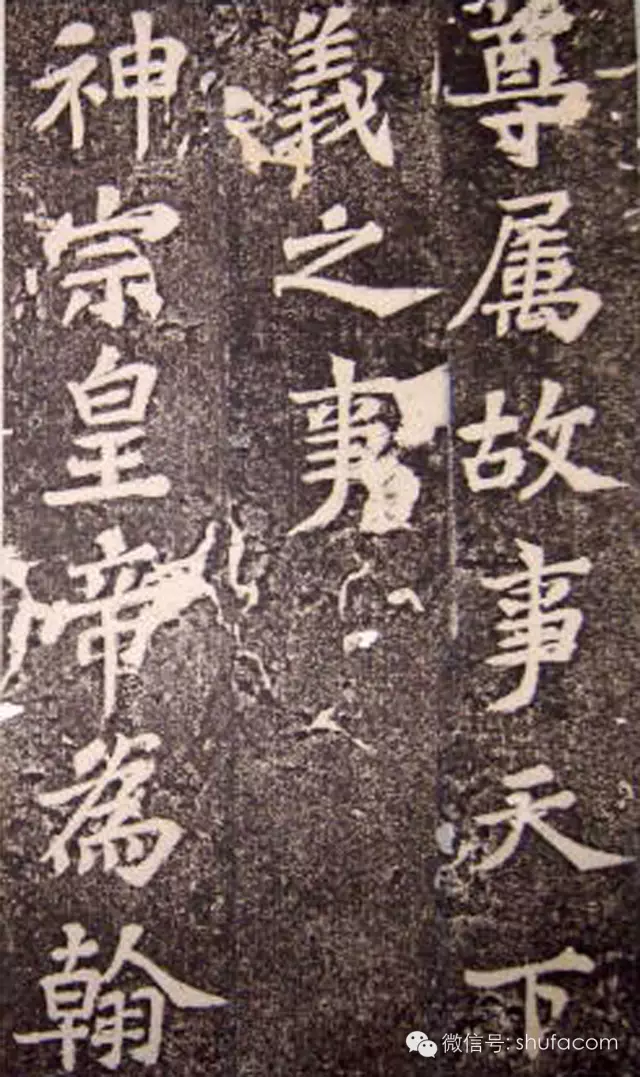 尊属故事天下
義之事
神宗皇帝為翰
微信号: shufacom